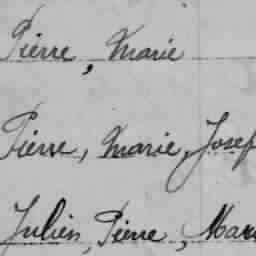 Pierre, Marie
Pierre, Marie, Josef
Julien, Pierre, Mari